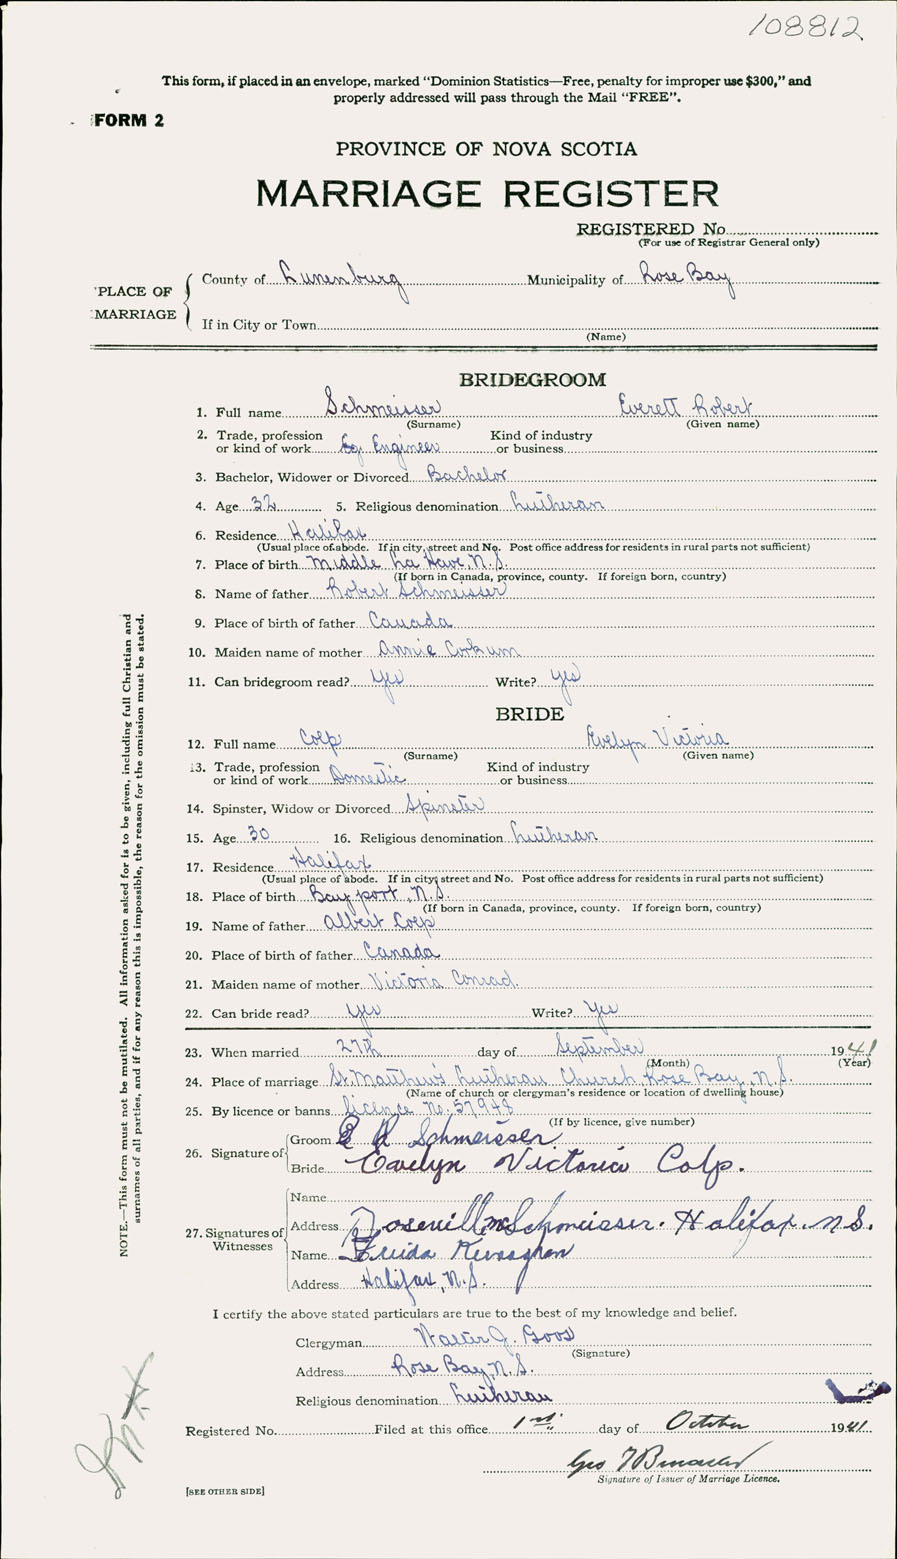 108812
This form, if placed in an envelope, marked "Dominion Statistics—Free, penalty for improper use $300," and
properly addressed will pass through the Mail "FREE".
FORM 2
PROVINCE OF NOVA SCOTIA
MARRIAGE REGISTER
REGISTERED No
(For use of Registrar General only)
PLACE OF MARRIAGE
County of Lunenburg Municipality of Rose Bay
If in City or Town
(Name)
BRIDEGROOM
1. Full name Schmeisser Everett Robert
(Surname) (Given name)
2. Trade, profession or kind of work Engineer Kind of industry or business
3. Bachelor, Widower or Divorced Bachelor
4. Age 32 5. Religious denomination Lutheran
6. Residence Halifax
(Usual place of abode. If in city, street and No. Post office address for residents in rural parts not sufficient)
7. Place of birth Middle La Have, N.S.
(If born in Canada, province, county. If foreign born, country)
8. Name of father Robert Schmeisser
9. Place of birth of father Canada
10. Maiden name of mother Annie Corkum
11. Can bridegroom read? Yes Write? Yes
BRIDE
12. Full name Colp Evelyn Victoria
(Surname) (Given name)
13. Trade, profession or kind of work Domestic Kind of industry or business
14. Spinster, Widow or Divorced Spinster
15. Age 30 16. Religious denomination Lutheran
17. Residence Halifax
(Usual place of abode. If in city, street and No. Post office address for residents in rural parts not sufficient)
18. Place of birth Bayport, N.S.
(If born in Canada, province, county. If foreign born, country)
19. Name of father Albert Colp
20. Place of birth of father Canada
21. Maiden name of mother Victoria Conrad.
22. Can bride read? Yes Write? Yes
23. When married 27th day of September 1941
(Month) (Year)
24. Place of marriage St. Matthew's Lutheran Church, Rose Bay, N.S.
(Name of church or clergyman's residence or location of dwelling house)
25. By licence or banns Licence no. 57948
(If by licence, give number)
26. Signature of
Groom E R Schmeisser
Bride Evelyn Victoria Colp.
27. Signatures of Witnesses
Name
Address Schmeisser. Halifax. N.S.
Name
Address Halifax, N.S.
I certify the above stated particulars are true to the best of my knowledge and belief.
Clergyman Walter J. Goos
(Signature)
Address Rose Bay, N.S.
Religious denomination Lutheran
Registered No. Filed at this office 1st day of October 1941
Geo
Signature of Issuer of Marriage Licence.
[SEE OTHER SIDE]
NOTE.—This form must not be mutilated. All information asked for is to be given, including full Christian and
surnames of all parties, and if for any reason this is impossible, the reason for the omission must be stated.